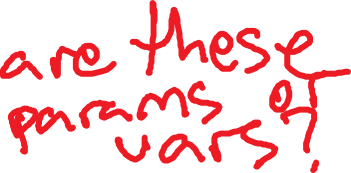 are these
params or
vars?